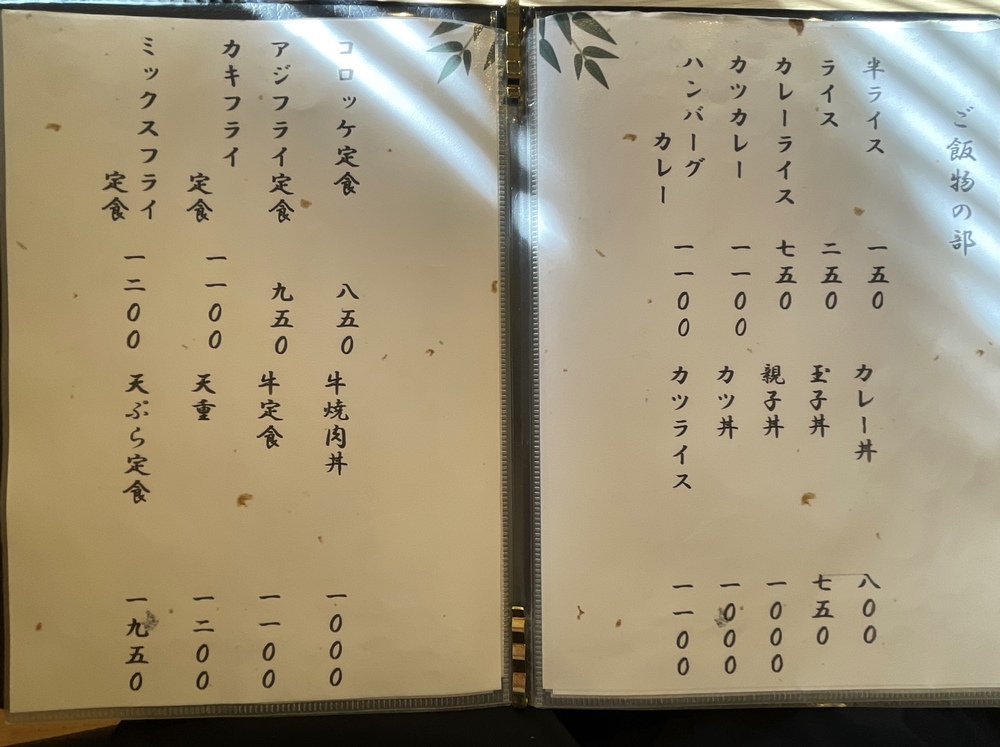 ご飯物の部
半ライス 一五0
ライス 二五0
カレーライス 七五0
カツカレー 一一00
ハンバーグ
カレー 一一00
カレー丼 八00
玉子丼 七五0
親子丼 一000
カツ丼 一000
カツライス 一一00
コロッケ定食 八五0
アジフライ定食 九五0
カキフライ
定食 一一00
ミックスフライ
定食 一二00
牛焼肉丼 一000
牛定食 一一00
天重 一二00
天ぷら定食 一九五0